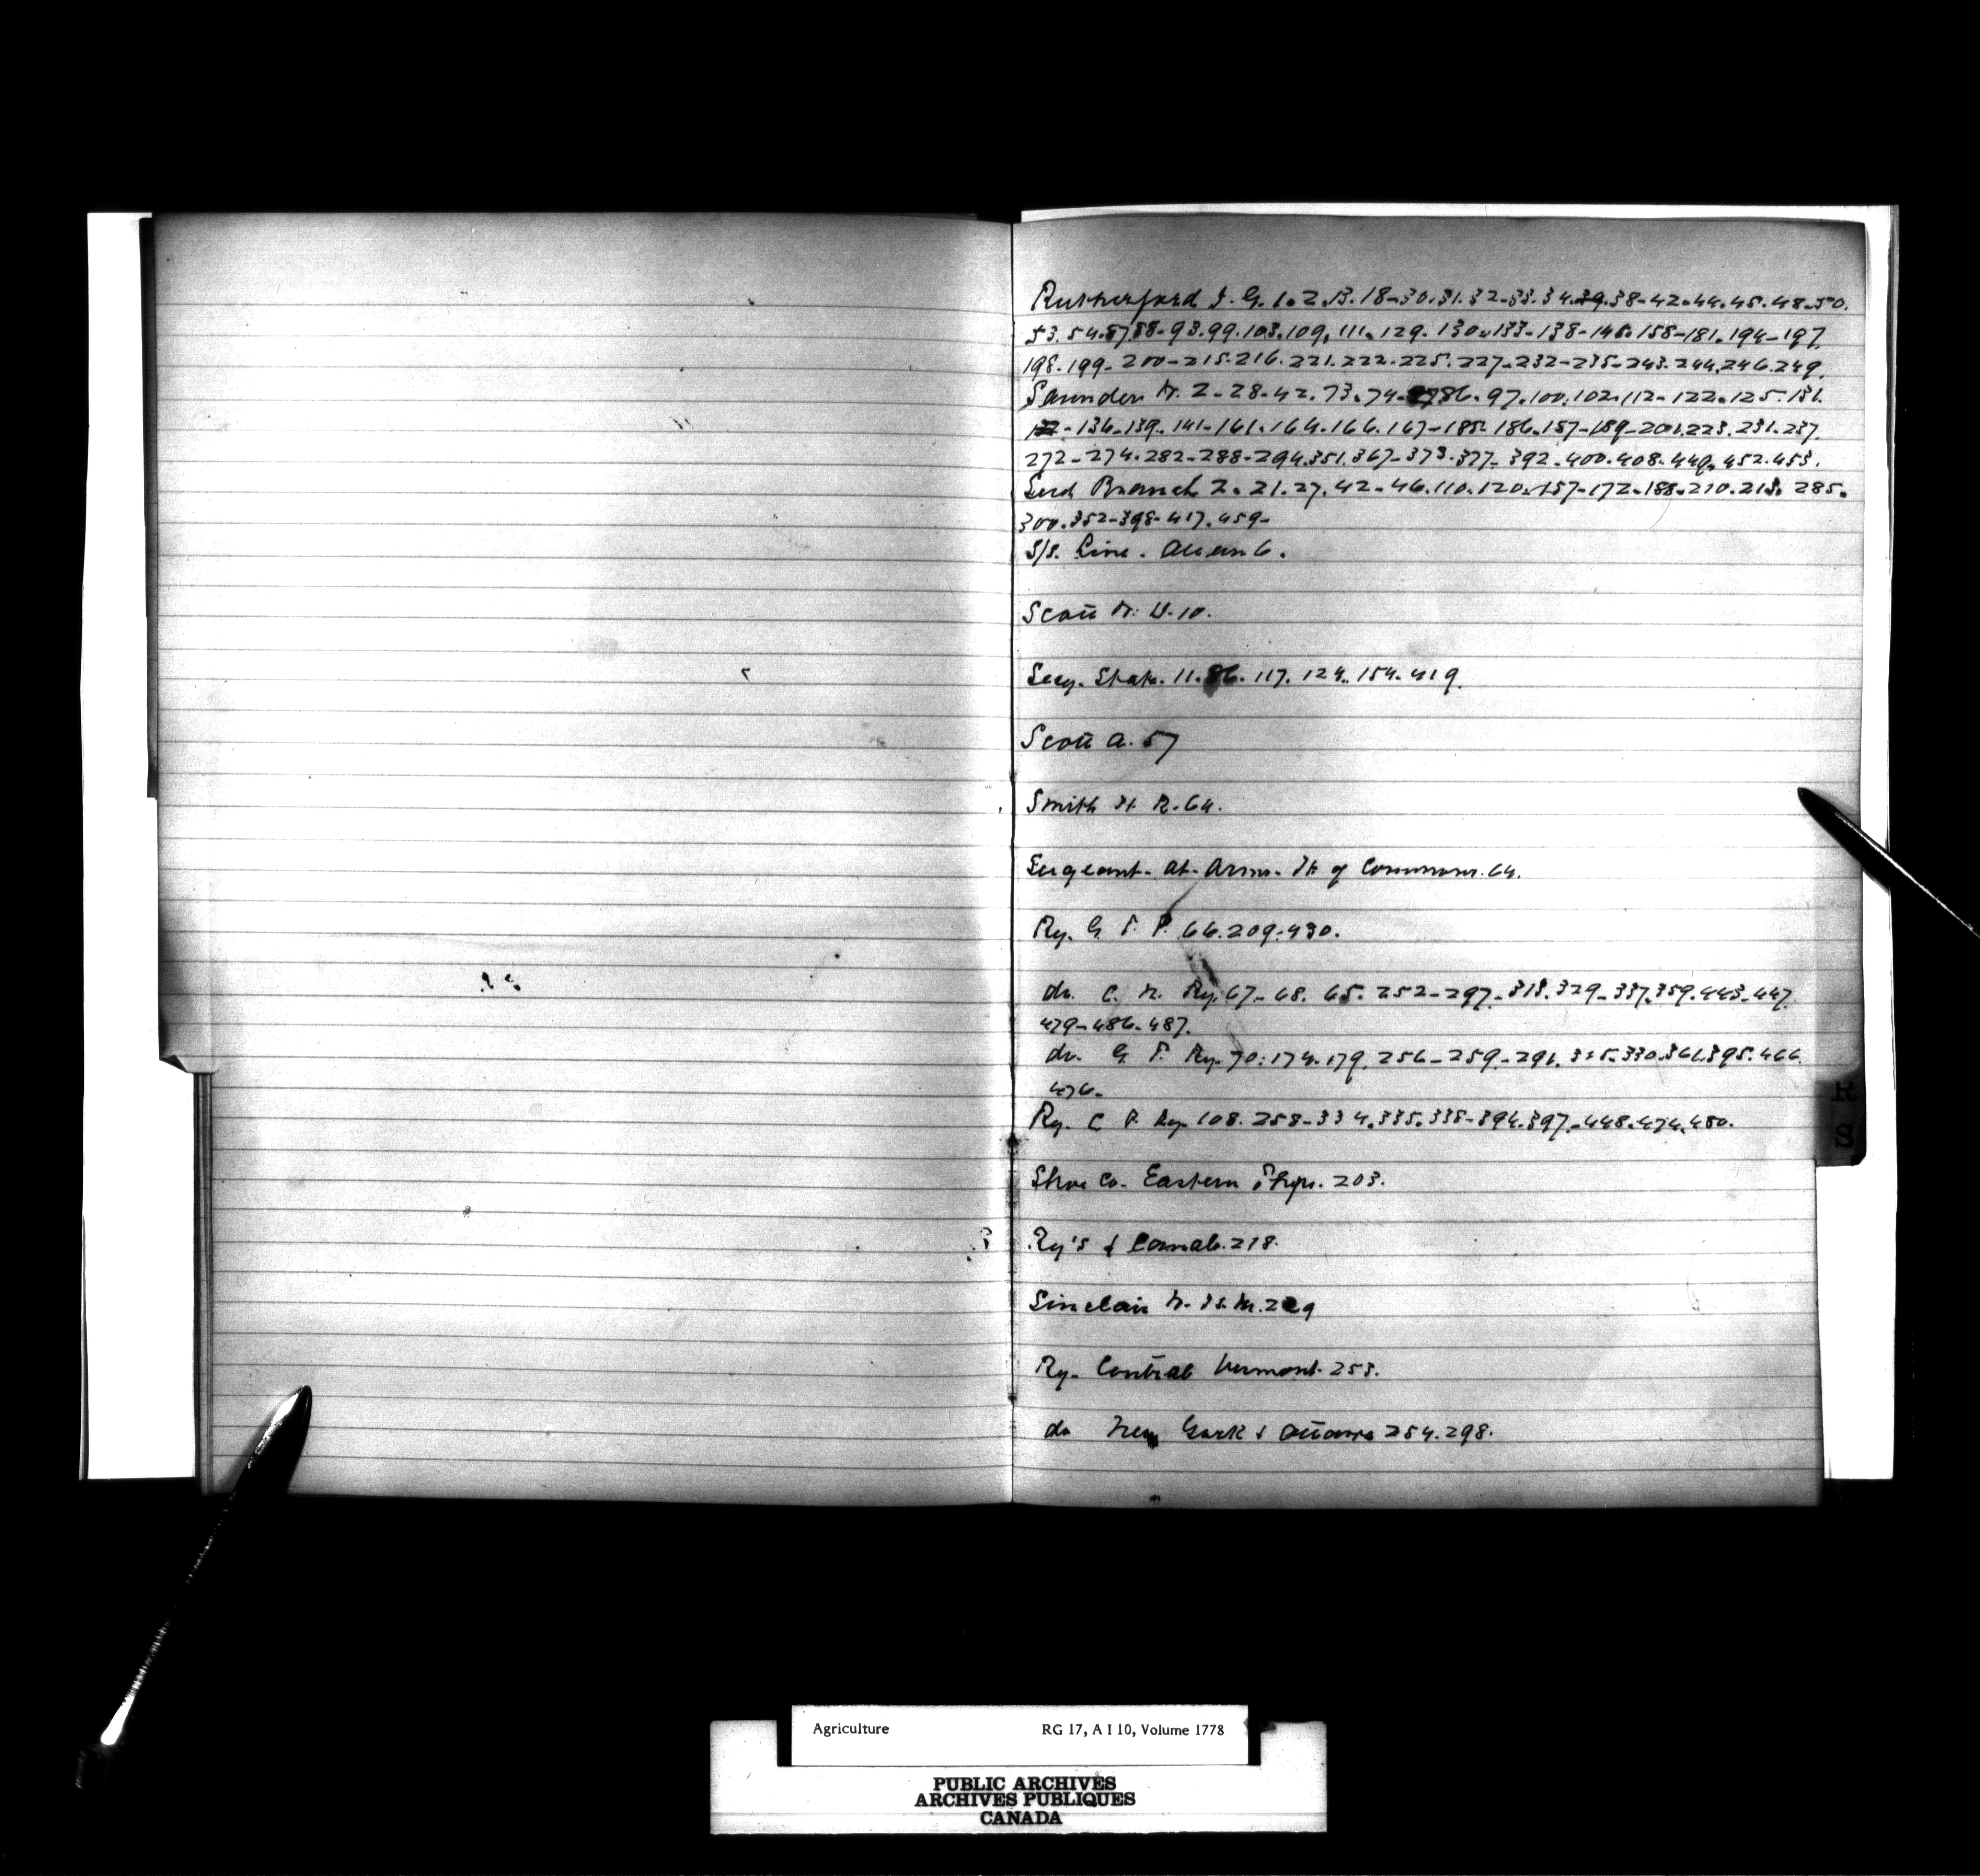 Rutherford J. G. 1. 2. 13. 18-30. 31. 32-33. 34. 39. 38-42. 44. 45. 48-50.
53. 54. 87 88-93. 99. 103. 109. 111. 129. 130. 133-138-146. 158-181. 194-197.
198. 199-200-215. 216. 221. 222. 225. 227-232-235-243. 244. 246. 249.
Saunders Dr. 2-28-42. 73. 74. 86. 97. 100. 102. 112-122. 125. 131.
136-139. 141-161. 164. 166. 167-185. 186. 187-189-201. 223. 231. 237.
272-274. 282-288-294. 351. 367-373. 377-392. 400. 408. 449. 452. 453.
Seed Branch 2. 21. 27. 42-46. 110. 120. 157-172. 188. 210. 213. 285.
300. 352-398-417. 459-
S/s. Line. Allan 6.
Scott 10.
Secy. State. 11. 86. 117. 124. 154. 419.
Scott A. 57
Smith H R. 64.
Sergeant-at-Arms. H. of Commons. 64.
Ry. G. T. P. 66. 209. 430.
do. C. N. Ry. 67-68. 65. 252-297-313. 329-337. 359. 443-447.
479-486. 487.
do. G. T. Ry. 70. 174. 179. 256-259-291. 315. 330. 361. 395. 466.
476.
Ry. C P. Ry. 108. 258-334. 335. 338-394. 397-448. 474. 480.
Shoe Co. Eastern Twps. 203.
Ry's & Canals. 218.
Sinclair
Ry. Central Vermont. 253.
do New York & Ottawa 254. 298.
R
S
Agriculture RG 17, A I 10, Volume 1778
PUBLIC ARCHIVES
ARCHIVES PUBLIQUES
CANADA